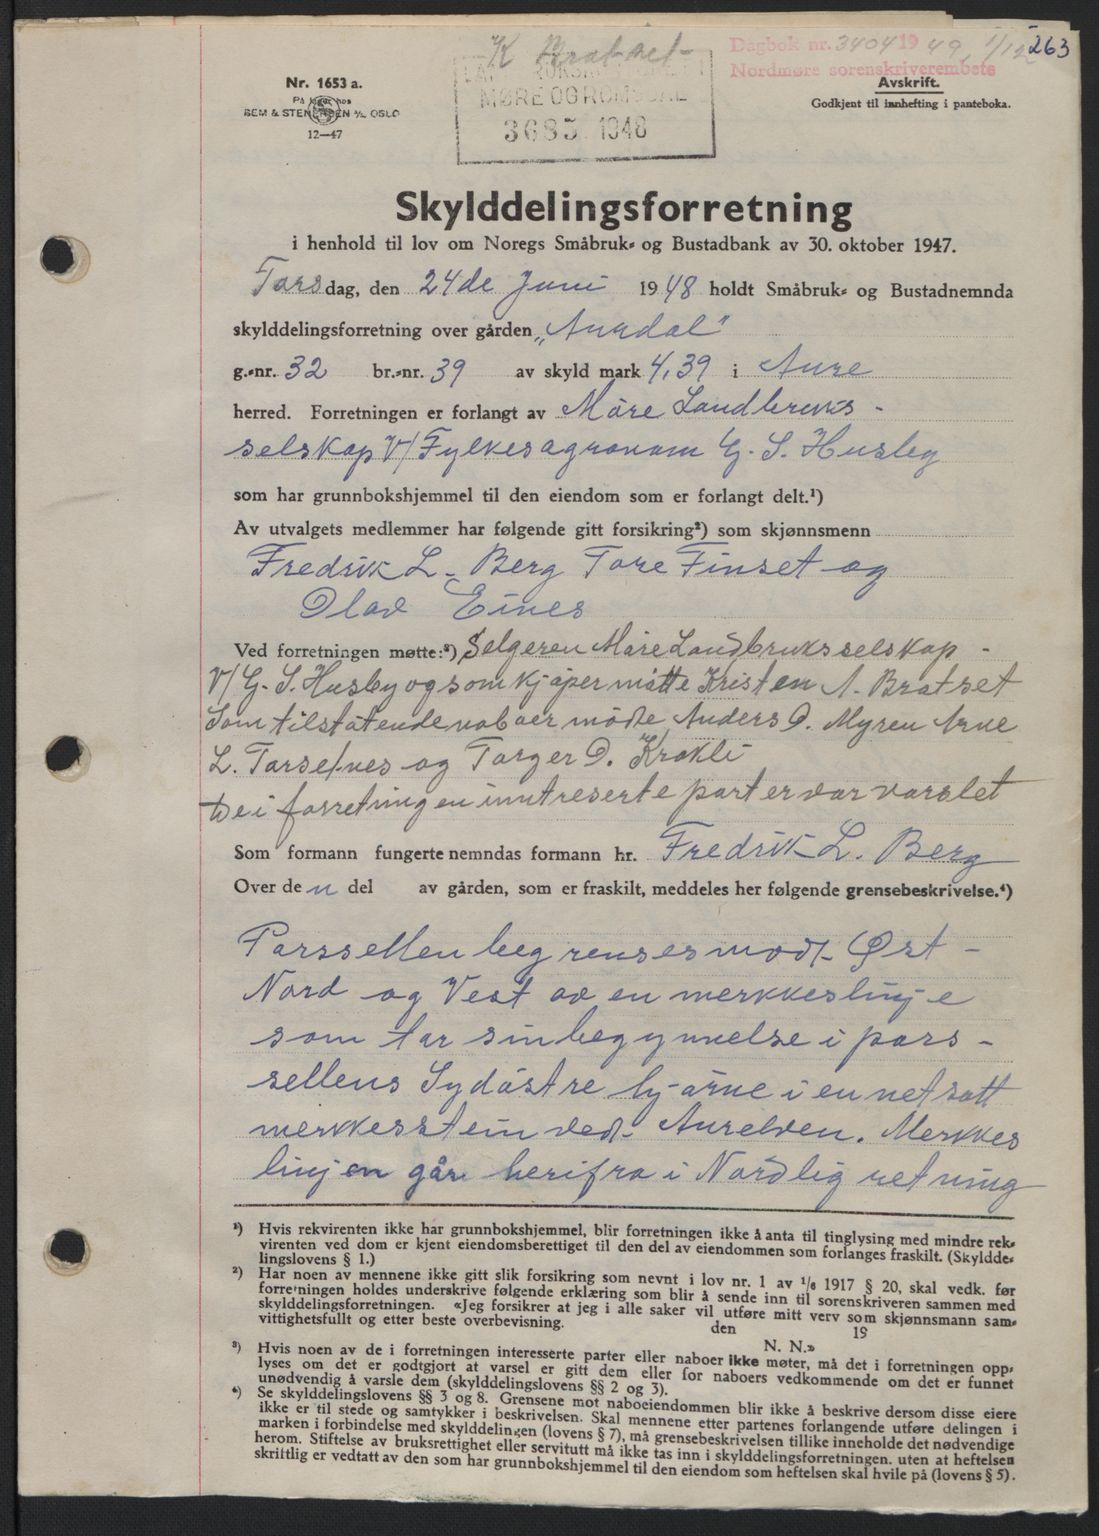 K Bratset
Dagbok nr. 3404 1949, 1/12 263
Nordmøre sorenskriverembete
Nr. 1653 a.
På lager hos
SEM & STENERSEN A/S, OSLO
12—47
MØRE OG ROMSDAL
3685. 1948
Avskrift.
Godkjent til innhefting i panteboka.
Skylddelingsforretning
i henhold til lov om Noregs Småbruk- og Bustadbank av 30. oktober 1947.
Torsdag, den 24de Juni 1948 holdt Småbruk- og Bustadnemnda
skylddelingsforretning over gården „Auredal"
g.-nr. 32 br.-nr. 39 av skyld mark 4,39 i Aure
herred. Forretningen er forlangt av Møre Landbruks-
selskap V/ Fylkesagronom G. S. Husby
som har grunnbokshjemmel til den eiendom som er forlangt delt.¹)
Av utvalgets medlemmer har følgende gitt forsikring²) som skjønnsmenn
Fredrik L. Berg Tore Finset og
Olav Eines
Ved forretningen møtte:³) Selgeren Møre Landbruksselskap -
V/ G. S. Husby og som kjøper møtte Kristen A. Bratset
Som tilstøtende naboer mødte Anders O. Myren Arne
L. Torsetnes og Torger O. Krokli
De i forretningen inntreserte parter var varslet
Som formann fungerte nemndas formann hr. Fredrik L. Berg
Over den del av gården, som er fraskilt, meddeles her følgende grensebeskrivelse.⁴)
Parssellen begrenses modt Øst -
Nord og Vest av en merkkeslinje
som tar sin begynnelse i pars-
sellens Sydøstre hjørne i en netsatt
merkkesstein ved Aurelven. Merkkes
linjen går herifra i Nordlig retning
¹) Hvis rekvirenten ikke har grunnbokshjemmel, blir forretningen ikke å anta til tinglysing med mindre rek-
virenten ved dom er kjent eiendomsberettiget til den del av eiendommen som forlanges fraskilt. (Skyldde-
lingslovens § 1.)
²) Har noen av mennene ikke gitt slik forsikring som nevnt i lov nr. 1 av 1/6 1917 § 20, skal vedk. før
forretningen holdes underskrive følgende erklæring som blir å sende inn til sorenskriveren sammen med
skylddelingsforretningen. «Jeg forsikrer at jeg i alle saker vil utføre mitt verv som skjønnsmann sam-
vittighetsfullt og etter beste overbevisning. den 19
N. N.»
³) Hvis noen av de i forretningen interesserte parter eller naboer ikke møter, må det i forretningen opp-
lyses om det er godtgjort at varsel er gitt dem eller for naboers vedkommende om det er funnet
unødvendig å varsle dem (skylddelingslovens §§ 2 og 3).
⁴) Se skylddelingslovens §§ 3 og 8. Grensene mot naboeiendommen blir ikke å beskrive dersom disse eiere
ikke er til stede og samtykker i beskrivelsen. Skal mennene etter partenes forlangende utføre delingen i
marken i forbindelse med skylddelingen (lovens § 7), må grensebeskrivelsen tillike inneholde det nødvendige
herom. Stiftelse av bruksrettighet eller servitutt må ikke tas inn i skylddelingsforretningen. uten at heftelsen
skriftlig er vedtatt av den som har grunnbokshjemmel til den eiendom som heftelsen skal hvile på (lovens § 5).